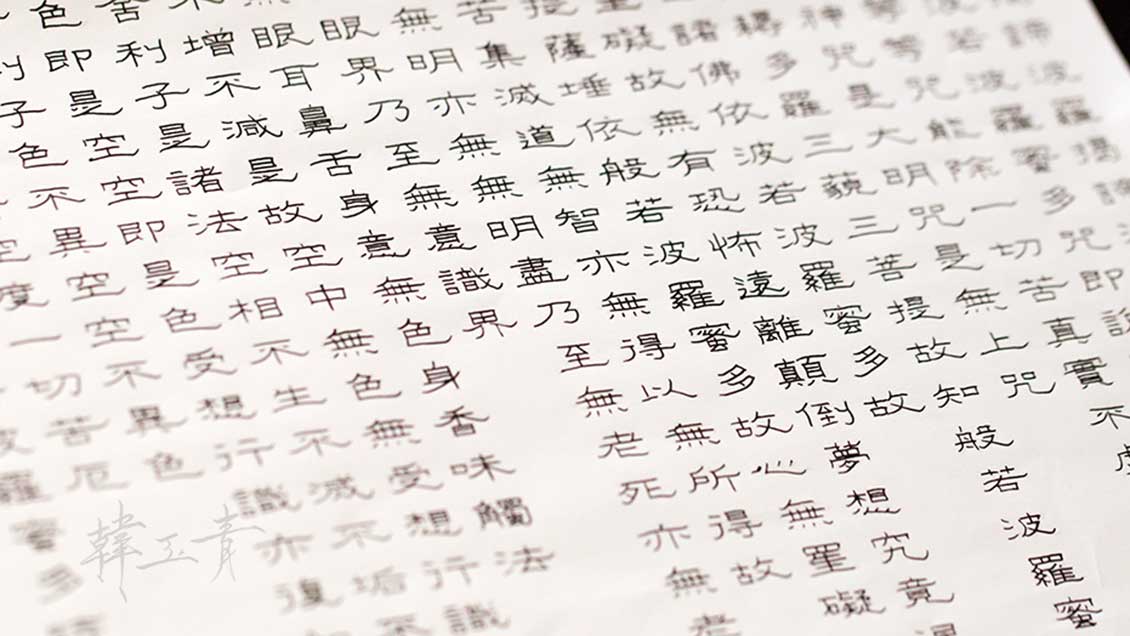 羅蜜多
空度一切苦厄
子色不異空空不異色
色即是空空即是色受想行識亦復
舍利子是諸法空相不生不滅不垢不
不增不減是故空中無色無受想行識
眼耳鼻舌身意無色身香味觸法
無眼界乃至無意識界
無明亦無無明盡乃至無老死亦無老
苦集滅道無智亦無得以無所得故
提薩埵依般若波羅蜜多故心無罣礙
礙故無有恐怖遠離顛倒夢想究竟
諸佛依波若波羅蜜多故
得多羅三藐三菩提故知般若波羅蜜
神咒是大明咒是無上咒
等咒能除一切苦真實不虛
若波羅蜜多咒即說
諦波羅揭諦
韓玉青